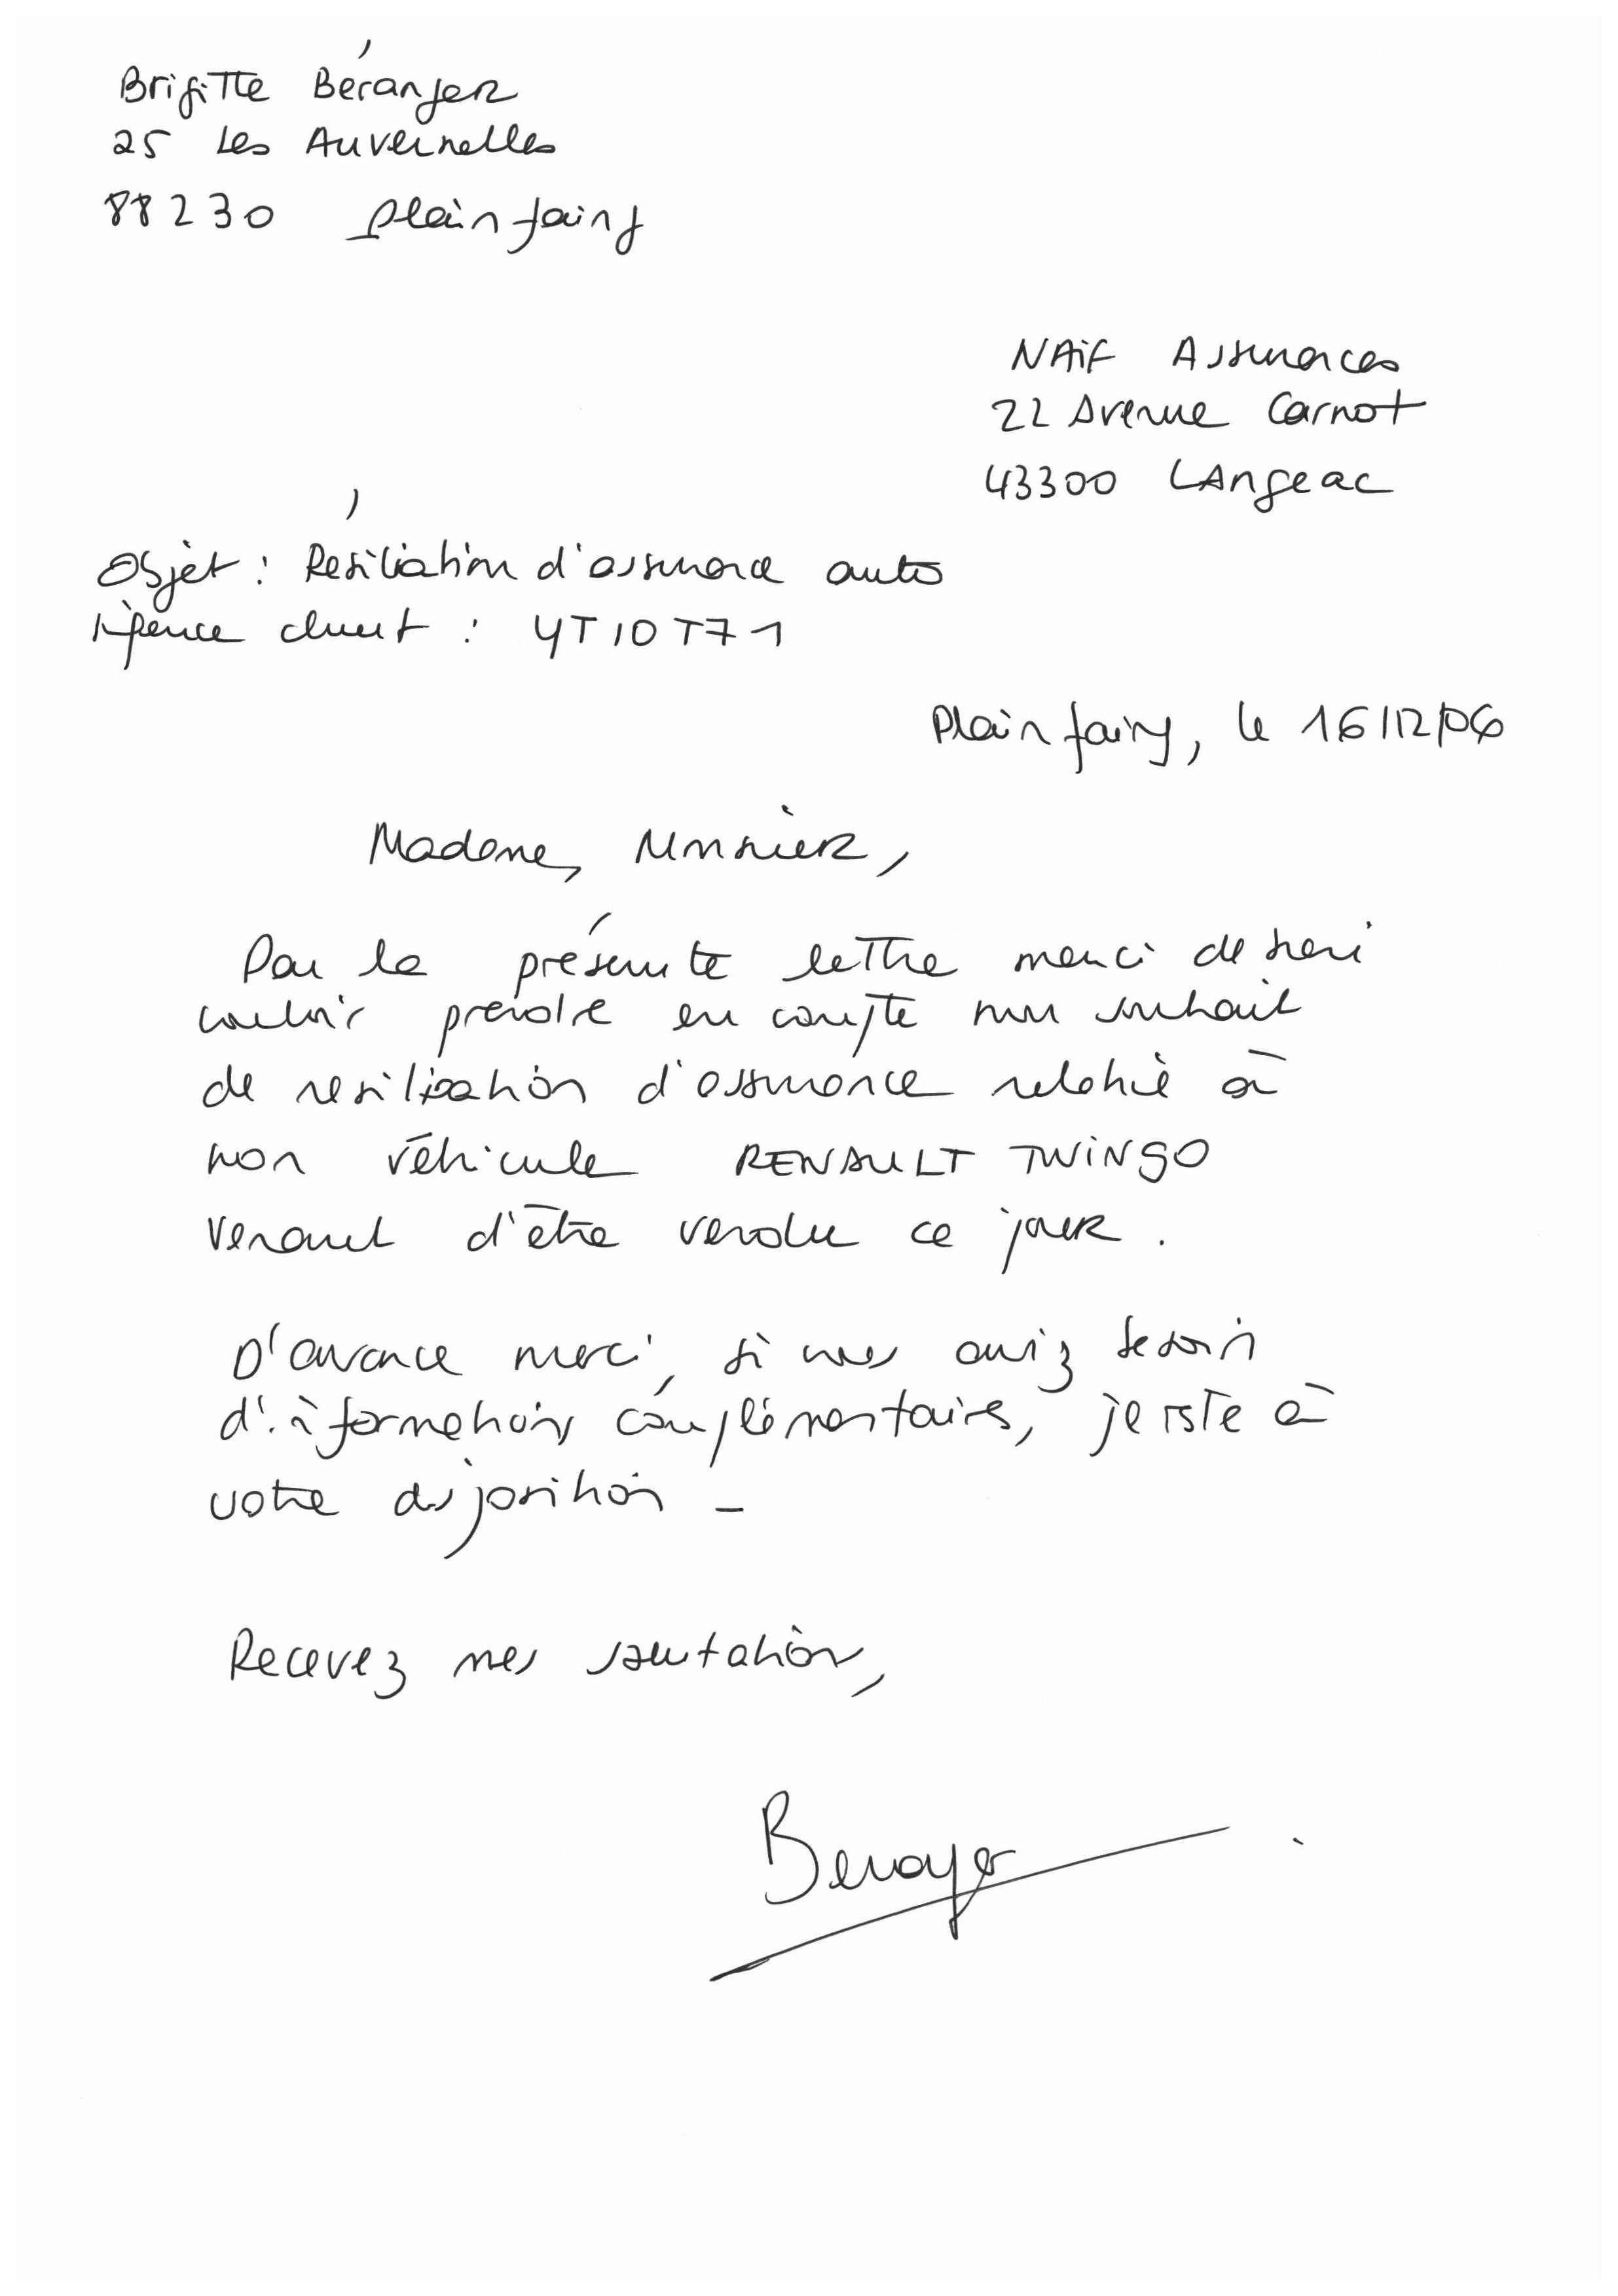 Brigitte Béranger
25 Les Auvernelles
88230 Plainfaing
NAIF Assurances
22 Avenue Carnot
43300 LAngeac
Objet : Résiliation d'assurance auto
référence client : YTIOT71
Plainfaing, le 16/12/06
Madame, Monsieur,
Par la présente lettre merci de bien
vouloir prendre en compte mon souhait
de résiliation d'assurance relatif à
mon véhicule RENAULT TWINGO
venant d'être vendu ce jour.
D'avance merci, si vous aviez besoin
d'informations complémentaires, je reste à
votre disposition -
Recevez mes salutations,
Beranger